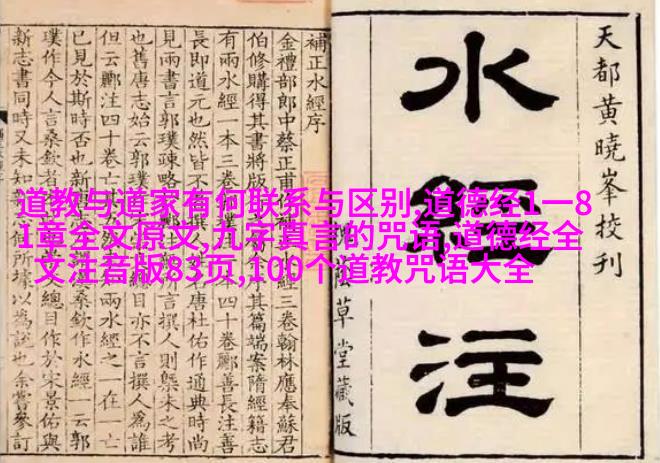 道教与道家有何联系与区别,道德经1一8
1章全文原文,九字真言的咒语,道德经全
文注音版83页,100个道教咒语大全
天都黄曉峯挍刊
水經注
草堂藏版
補正水經序
金禮部郎中蔡正甫經三卷翰林應奉蘇君
伯修購得其書將版其篇端案隋經籍志
有兩水經一本三卷郭本四十卷酈善長注善
長即道元也然皆不唐杜佑作通典時尚
見兩書言郭璞疎略撰人則槩未之考
也舊唐志始云郭璞作亦不言撰人為誰
但云酈注四十卷亡然兩水經之一在一亡
已見於斯時否也新桑欽作水經一云郭
璞作今人言桑欽者總目作於宋景佑與
新志書同時又未知新何所據以為說也余嘗參訂